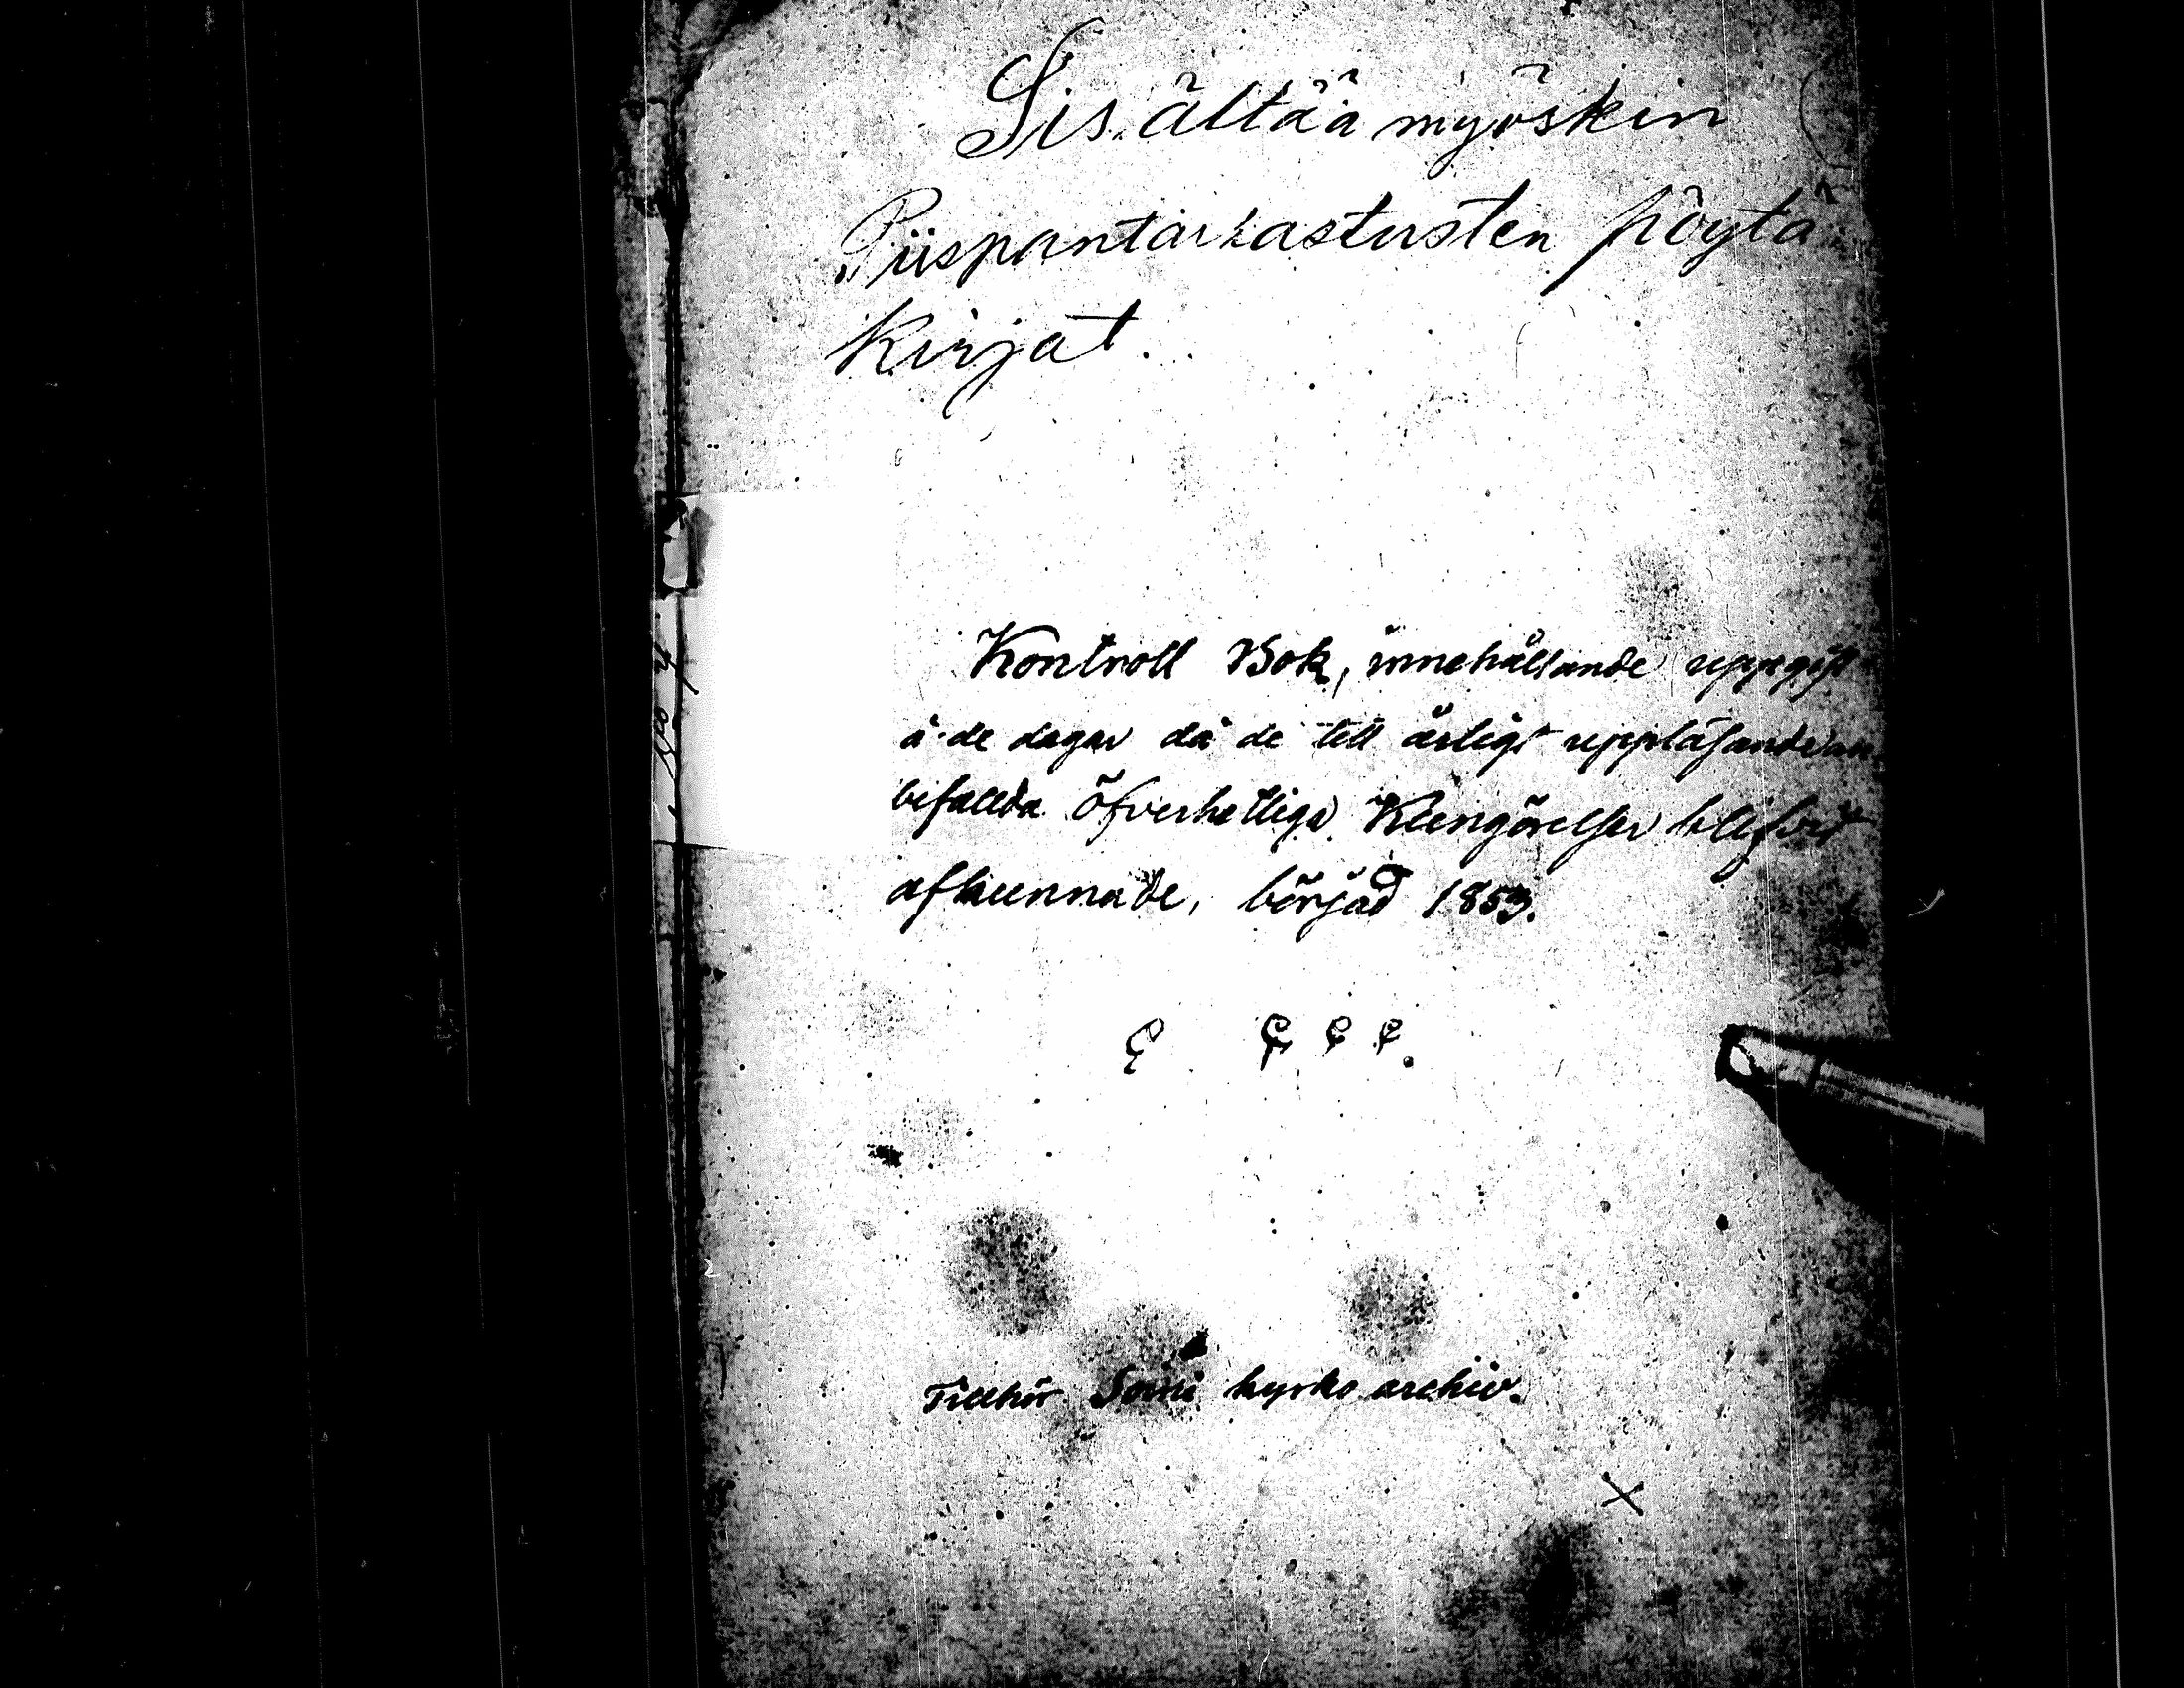 Sisältää myöskin
Piispantarkastusten pöytä
kirjat.
Kontroll Bok, innehållande uppgift
å de dagar då de till årligt uppläsande an
befallda Öfverhetliga Kungörelser blifvit
afkunnade, börjad 1853.
Tillhör kyrko archiv.